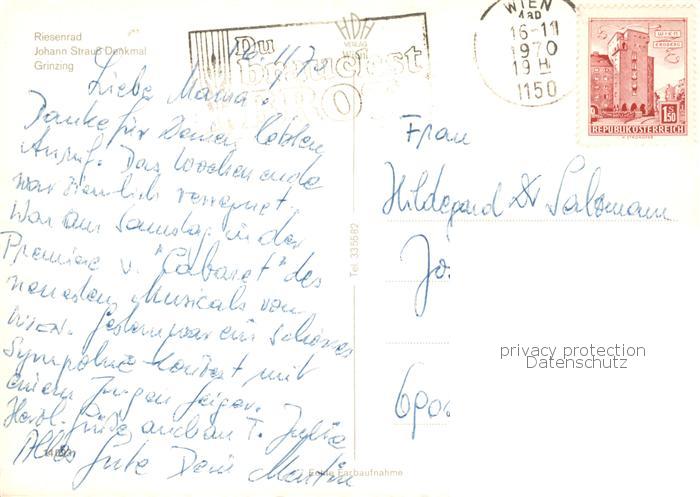 Riesenrad
Johann Strauß Denkmal
Grinzing
HDH
VERLAG
Du
brauchst
WIEN
16-11
1970
19 H
1150
WIEN
ERDBERG
1.50
REPUBLIK ÖSTERREICH
16.11.70
Liebe Mama!
Danke für Deinen letzten
Anruf. Das Wochenende
war ziemlich verregnet.
War am Samstag in der
Premiere v. "Cabaret" des
neuesten Musicals von
Wien. Gestern war ein schönes
Symphonie Konzert mit
einem jungen Geiger.
Herzl. Grüße auch an T. Julie
Alles Gute Dein Martin
Frau
Hildegard Dr Salzmann
Jo
690
Tel. 335682
Echte Farbaufnahme
privacy protection
Datenschutz